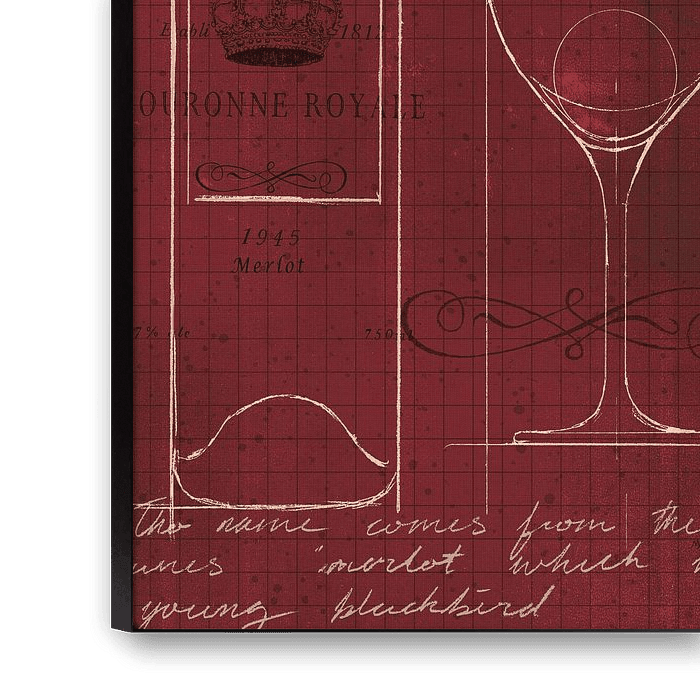 Establi 1812
OURONNE ROYALE
1945
Merlot
7% alc 750ml
the name comes from the
"merlot which
young bluckbird